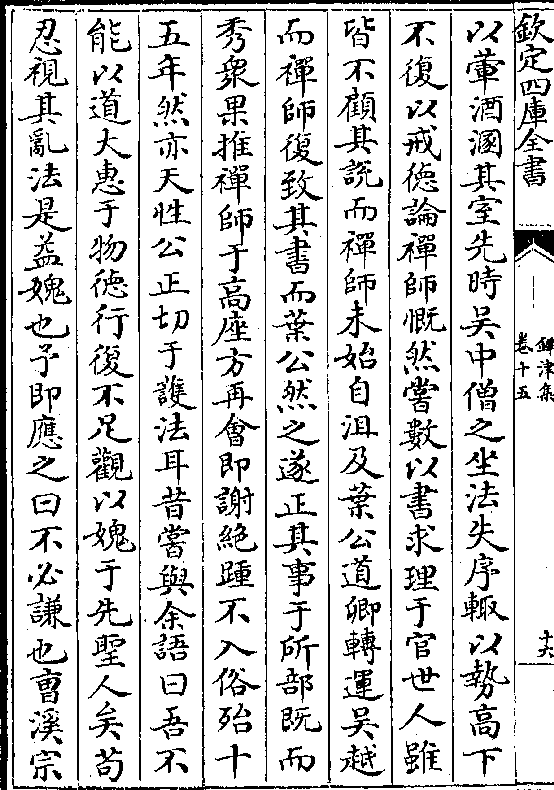 欽定四庫全書
鐔津集
卷十五
十六
以葷酒溷其室先時吳中僧之坐法失序輙以勢高下
不復以戒德論禪師慨然嘗數以書求理于官世人雖
皆不顧其說而禪師未始自沮及葉公道卿轉運吳越
而禪師復致其書而葉公然之遂正其事于所部既而
秀衆果推禪師于高座方再會即謝絶踵不入俗殆十
五年然亦天性公正切于護法耳昔嘗與余語曰吾不
能以道大惠于物德行復不足觀以媿于先聖人矣苟
忍視其亂法是益媿也予即應之曰不必謙也曹溪宗